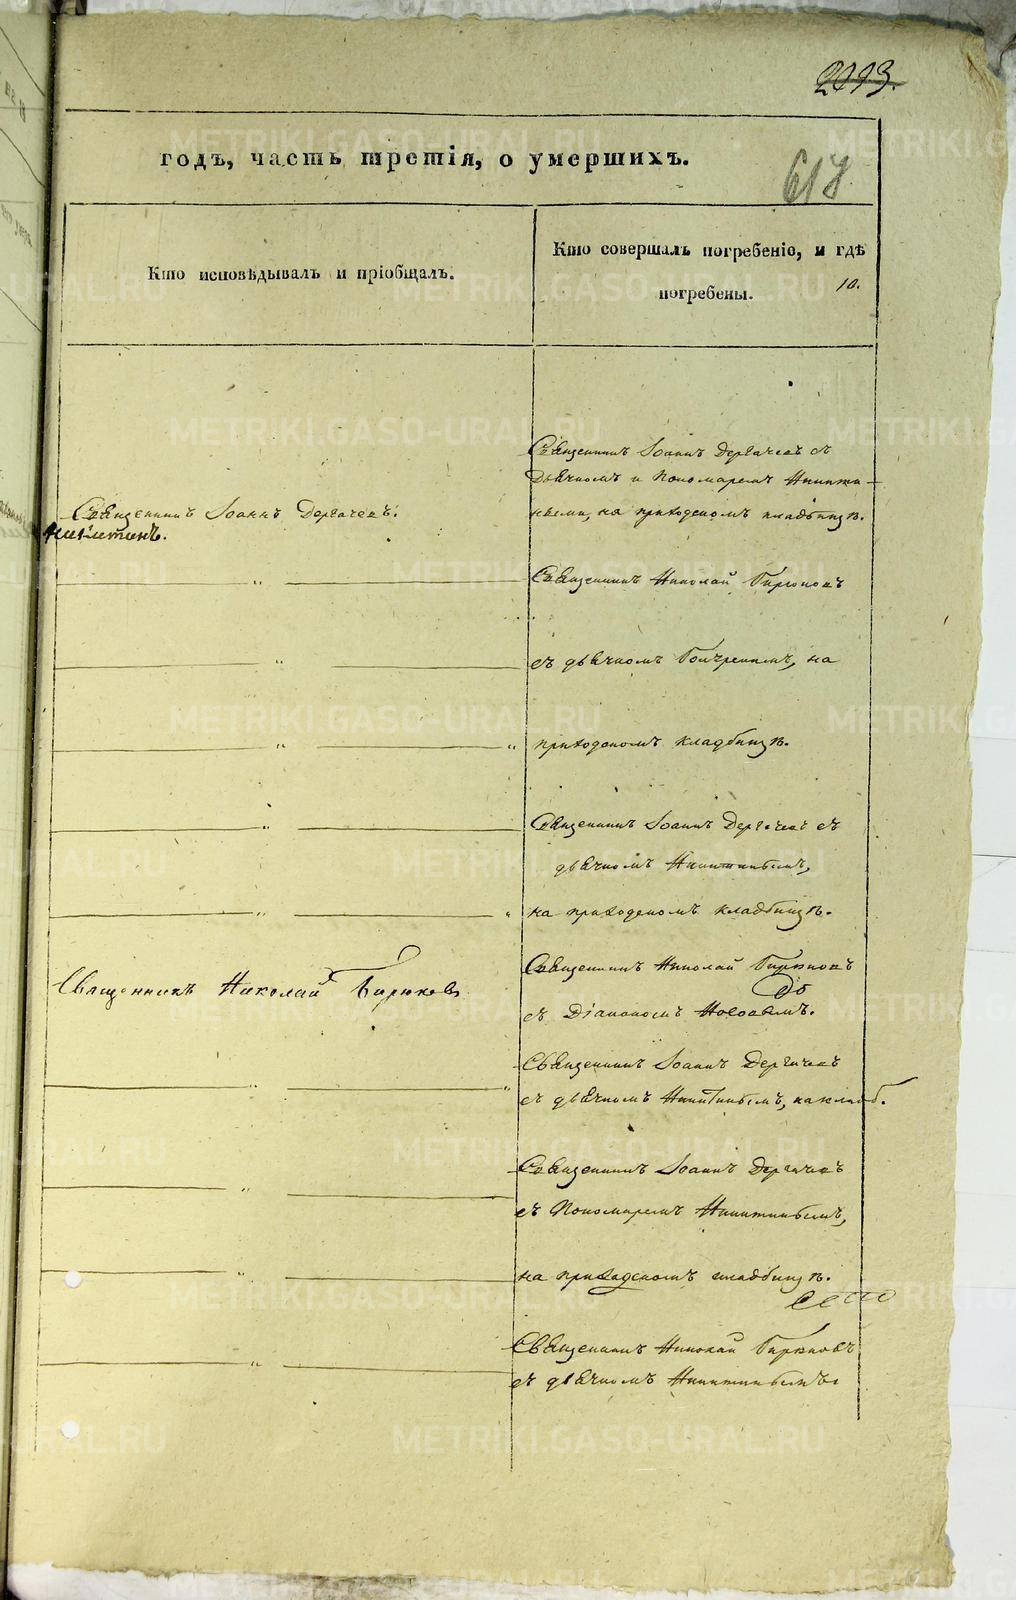 2993.
617
годъ, часть третія, о умершихъ.
Кто исповѣдывалъ и пріобщалъ.
Кто совершалъ погребеніе, и гдѣ
погребены.
10.
Священникъ Іоаннъ Дергачевъ съ
Дьячкомъ и Пономаремъ Никити-
ными, на приходскомъ кладбищѣ.
Священникъ Іоаннъ Дергачевъ.
Священникъ Николай Бирюковъ
съ дьячкомъ на
приходскомъ кладбищѣ.
Священникъ Іоаннъ Дергачевъ съ
дьячкомъ Никитинымъ,
на приходскомъ кладбищѣ.
Священникъ Николай Бирюковъ
Священникъ Николай Бирюковъ
съ Діакономъ
Священникъ Іоаннъ Дергачевъ
съ дьячкомъ Никитинымъ, на кладб.
Священникъ Іоаннъ Дергачевъ
съ Пономаремъ Никитинымъ,
на приходскомъ кладбищѣ.
Священникъ Николай Бирюковъ
съ дьячкомъ Никитинымъ.
METRIKI.GASO-URAL.RU